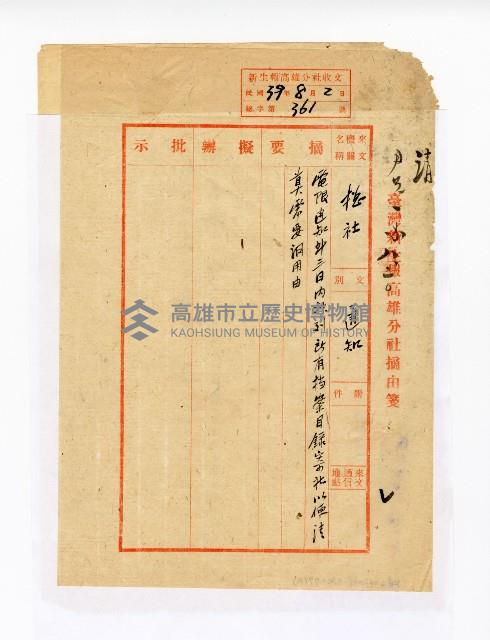 新生報高雄分社收文
民國39年8月2日
總字第361號
請
臺灣新生報高雄分社摘由箋
來文機關名稱
總社
文別
通知
附件
來文通信地點
摘要
擬辦
批示
限通知到三日內
所有檔案目錄寄北以便清
用由
高雄市立歷史博物館
KAOHSIUNG MUSEUM OF HISTORY